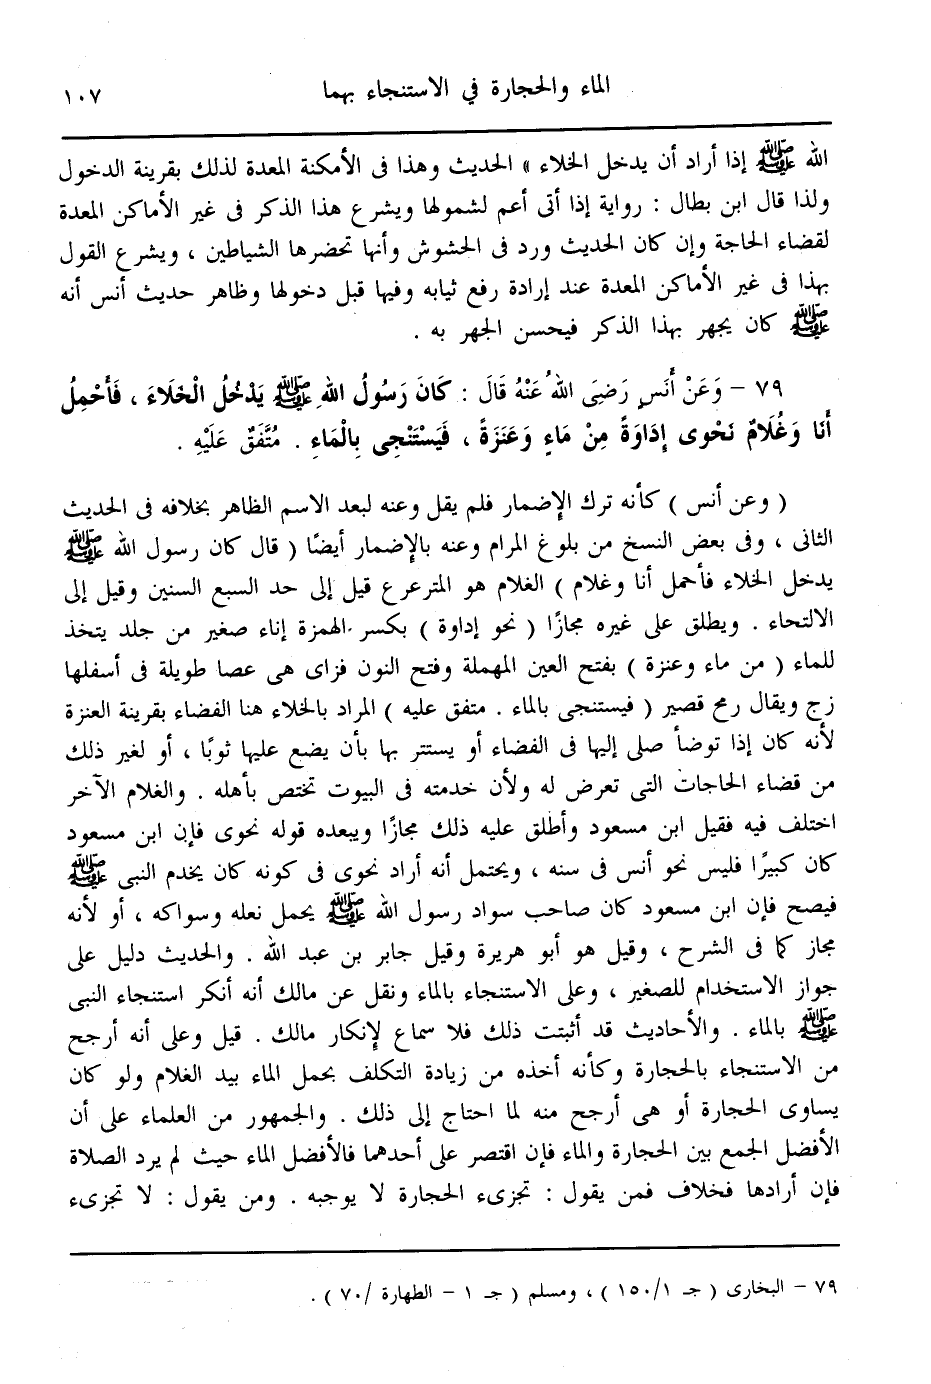 الماء والحجارة في الاستنجاء بهما ١٠٧
الله ﷺ إذا أراد أن يدخل الخلاء » الحديث وهذا فى الأمكنة المعدة لذلك بقرينة الدخول
ولذا قال ابن بطال : رواية إذا أتى أعم لشمولها ويشرع هذا الذكر فى غير الأماكن المعدة
لقضاء الحاجة وإن كان الحديث ورد فى الحشوش وأنها تحضرها الشياطين ، ويشرع القول
بهذا فى غير الأماكن المعدة عند إرادة رفع ثيابه وفيها قبل دخولها وظاهر حديث أنس أنه
ﷺ كان يجهر بهذا الذكر فيحسن الجهر به .
٧٩ – وَعَنْ أَنَسٍ رَضِيَ اللهُ عَنْهُ قَالَ : كَانَ رَسُولُ اللهِ ﷺ يَدْخُلُ الْخَلَاءَ ، فَأَحْمِلُ
أَنَا وَغُلَامٌ نَحْوِى إِدَاوَةً مِنْ مَاءٍ وَعَنَزَةً ، فَيَسْتَنْجِى بِالْمَاءِ . مُتَّفَقٌ عَلَيْهِ .
( وعن أنس ) كأنه ترك الإضمار فلم يقل وعنه لبعد الاسم الظاهر بخلافه فى الحديث
الثانى ، وفى بعض النسخ من بلوغ المرام وعنه بالإضمار أيضًا ( قال كان رسول الله ﷺ
يدخل الخلاء فأحمل أنا وغلام ) الغلام هو المترعرع قيل إلى حد السبع السنين وقيل إلى
الالتحاء . ويطلق على غيره مجازًا ( نحو إداوة ) بكسر الهمزة إناء صغير من جلد يتخذ
للماء ( من ماء وعنزة ) بفتح العين المهملة وفتح النون فزاى هى عصا طويلة فى أسفلها
زج ويقال رمح قصير ( فيستنجى بالماء . متفق عليه ) المراد بالخلاء هنا الفضاء بقرينة العنزة
لأنه كان إذا توضأ صلى إليها فى الفضاء أو يستتر بها بأن يضع عليها ثوبًا ، أو لغير ذلك
من قضاء الحاجات التى تعرض له ولأن خدمته فى البيوت تختص بأهله . والغلام الآخر
اختلف فيه فقيل ابن مسعود وأطلق عليه ذلك مجازًا ويبعده قوله نحوى فإن ابن مسعود
كان كبيرًا فليس نحو أنس فى سنه ، ويحتمل أنه أراد نحوى فى كونه كان يخدم النبى ﷺ
فيصح فإن ابن مسعود كان صاحب سواد رسول الله ﷺ يحمل نعله وسواكه ، أو لأنه
مجاز كما فى الشرح ، وقيل هو أبو هريرة وقيل جابر بن عبد الله . والحديث دليل على
جواز الاستخدام للصغير ، وعلى الاستنجاء بالماء ونقل عن مالك أنه أنكر استنجاء النبى
ﷺ بالماء . والأحاديث قد أثبتت ذلك فلا سماع لإنكار مالك . قيل وعلى أنه أرجح
من الاستنجاء بالحجارة وكأنه أخذه من زيادة التكلف بحمل الماء بيد الغلام ولو كان
يساوى الحجارة أو هى أرجح منه لما احتاج إلى ذلك . والجمهور من العلماء على أن
الأفضل الجمع بين الحجارة والماء فإن اقتصر على أحدهما فالأفضل الماء حيث لم يرد الصلاة
فإن أرادها فخلاف فمن يقول : تجزىء الحجارة لا يوجبه . ومن يقول : لا تجزىء
٧٩ – البخارى ( جـ ١/ ١٥٠ ) ، ومسلم ( جـ ١ – الطهارة / ٧٠ ) .